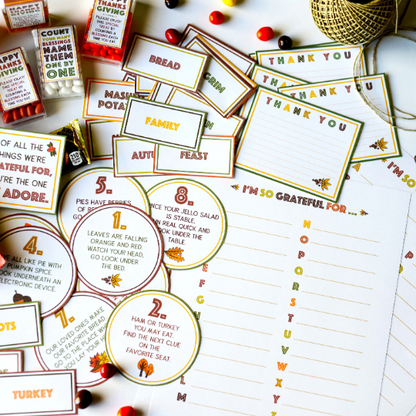 HAPPY
THANKS
GIVING
COUNT
BLESSINGS
NAME
THEM
ONE
BY ONE
HAPPY
THANKS
GIVING
OF ALL THE
THINGS WE'RE
GRATEFUL FOR,
YOU'RE THE ONE
ADORE.
BREAD
PILGRIM
FAMILY
FEAST
THANK YOU
THANK YOU
THANK YOU
I'M SO GRATEFUL FOR ...
5.
PIES HAVE
8.
ONCE YOUR JELLO SALAD
IS STABLE,
RUN REAL QUICK AND
LOOK UNDER THE
TABLE
1.
LEAVES ARE FALLING
ORANGE AND RED.
WATCH YOUR HEAD,
GO LOOK
UNDER THE
BED.
4.
ALL LIKE PIE WITH
PUMPKIN SPICE.
LOOK UNDERNEATH AN
ELECTRONIC DEVICE.
7.
OUR LOVED ONES MAKE
OUR FAVORITE BREAD
GO TO THE PLACE WHERE
YOU LAY YOUR
2.
HAM OR TURKEY
YOU MAY EAT.
FIND THE NEXT CLUE
ON THE
FAVORITE SEAT.
TURKEY
E
F
G
L
M
N
O
P
Q
R
S
T
U
V
W
X
Y
Z